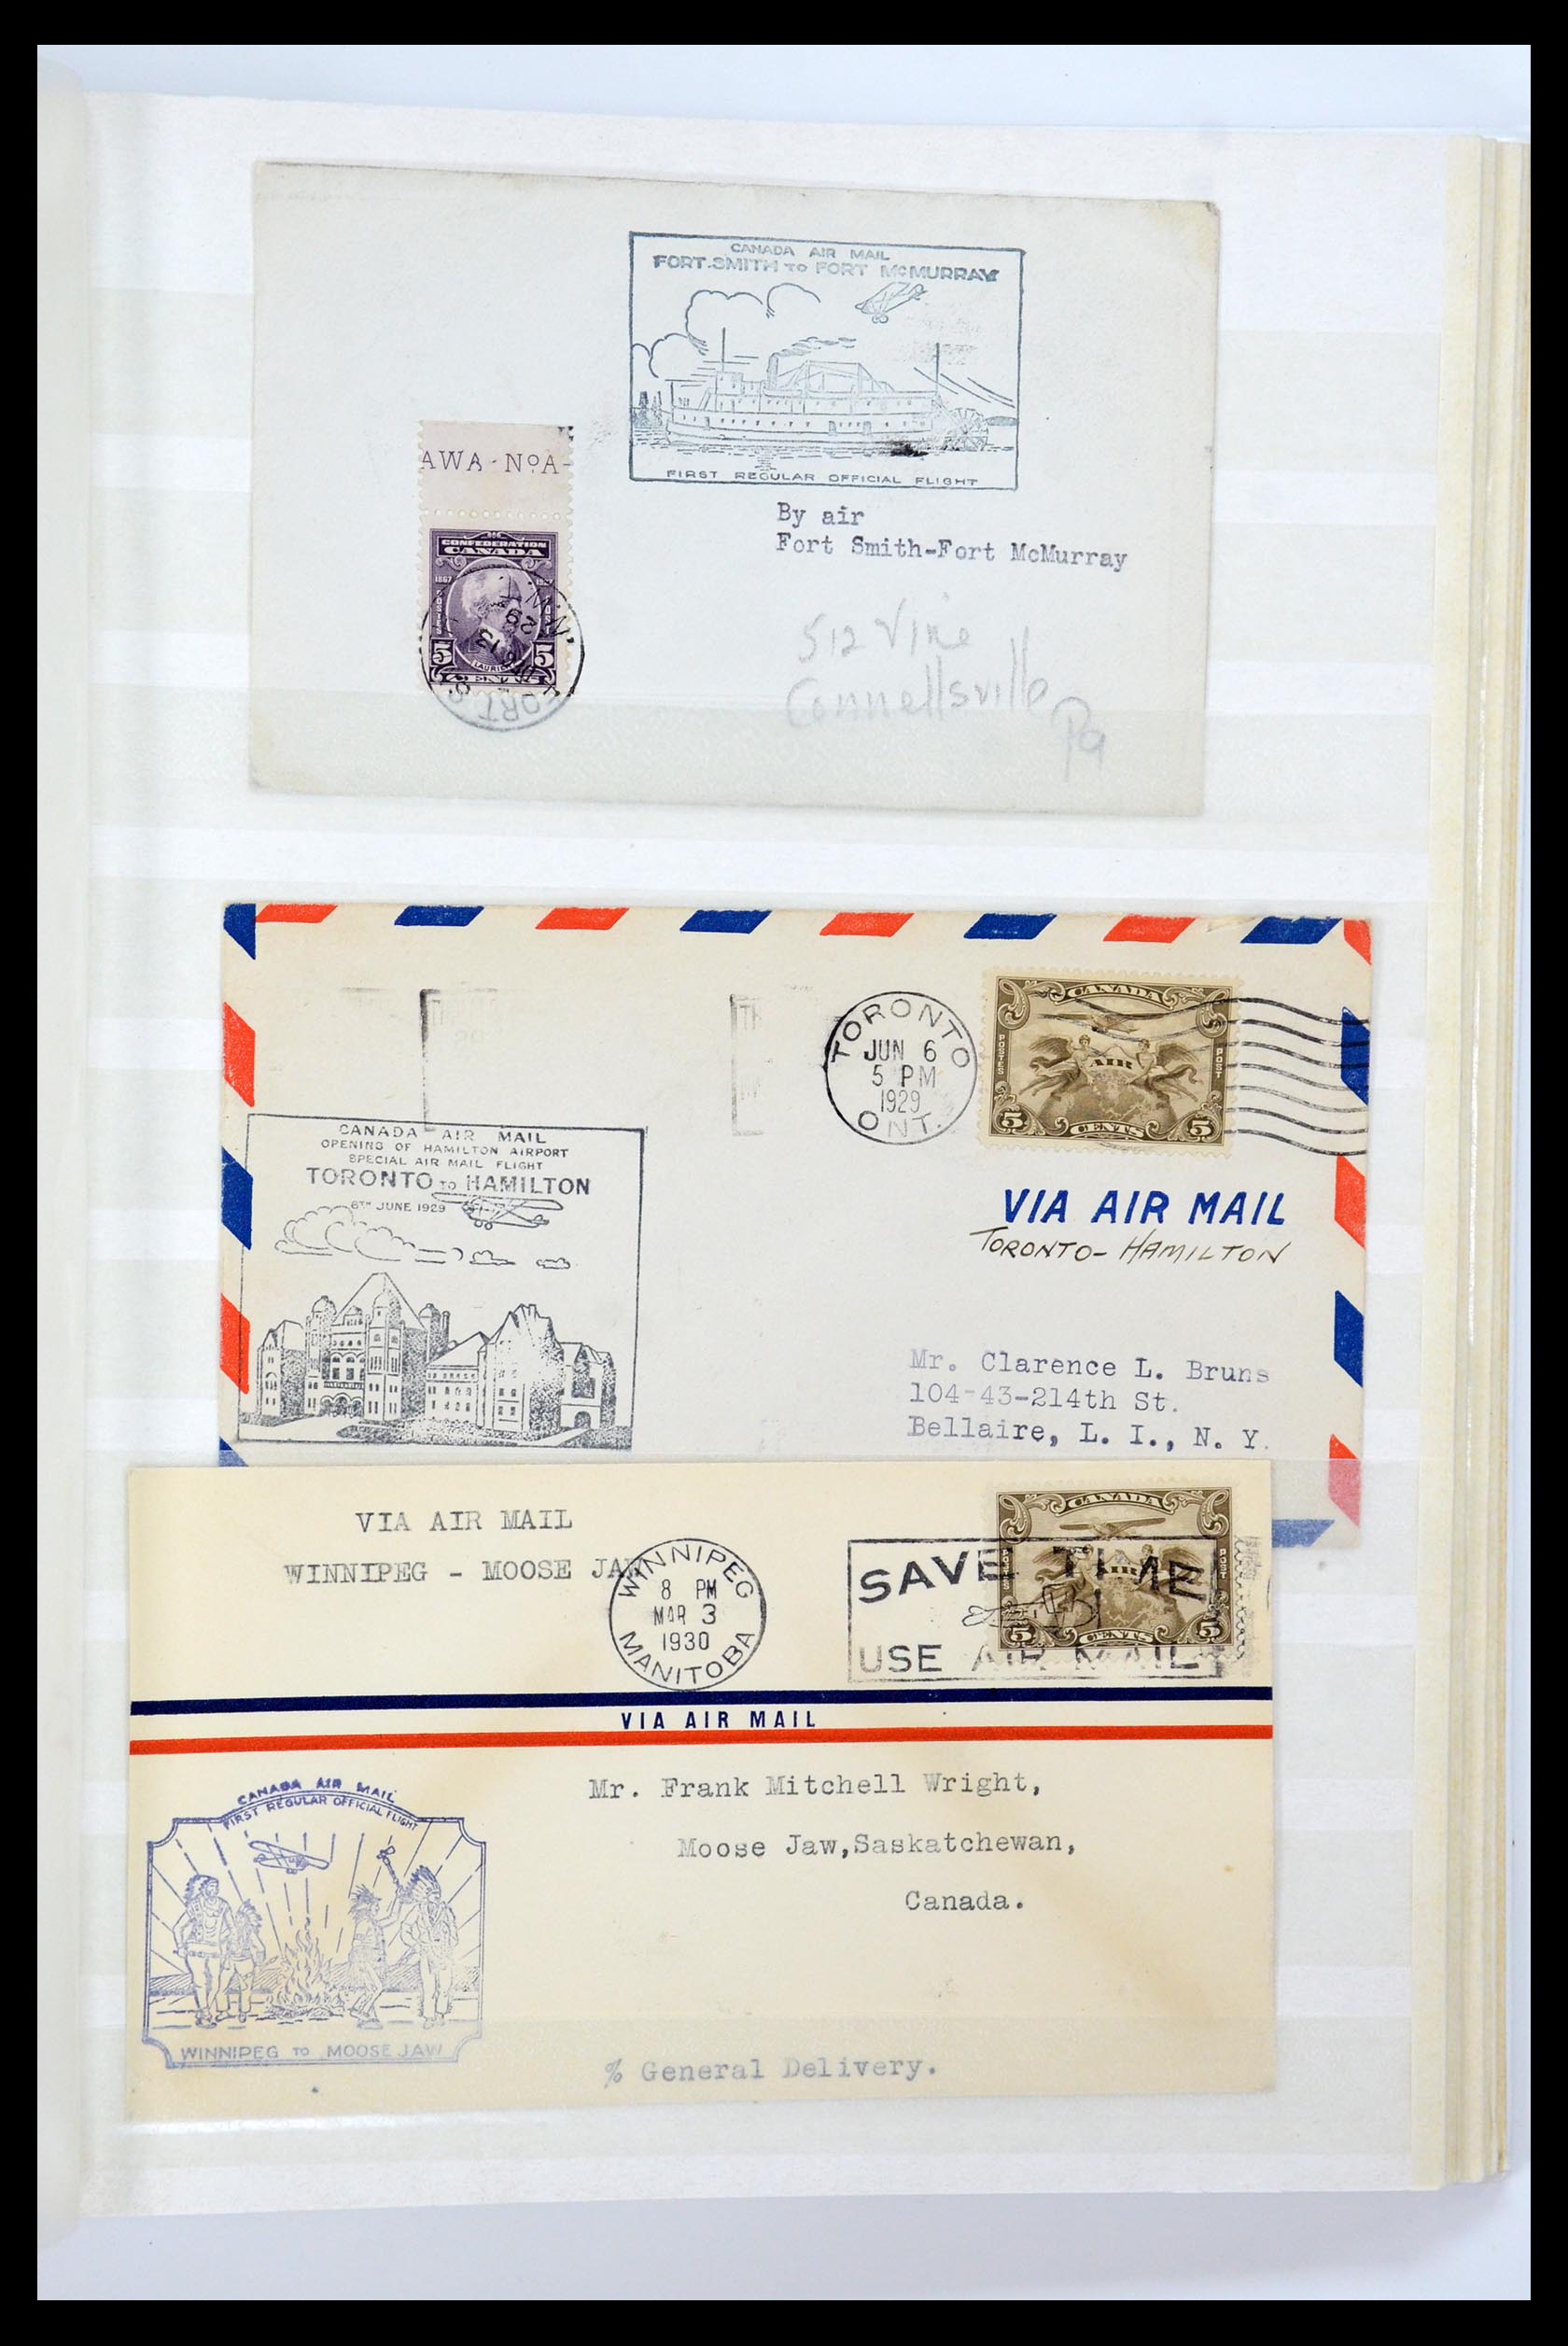 CANADA AIR MAIL
FORT-SMITH TO FORT McMURRAY
FIRST REGULAR OFFICIAL FLIGHT
AWA - No A-
CONFEDERATION
CANADA
1867 1927
LAURIER
5 5
CENTS
29
13
FORT S
By air
Fort Smith-Fort McMurray
512 Vine
Connellsville
Pa
TORONTO
JUN 6
5 PM
1929
ONT.
CANADA
POSTES POST
AIR
5 CENTS 5
CANADA AIR MAIL
OPENING OF HAMILTON AIRPORT
SPECIAL AIR MAIL FLIGHT
TORONTO TO HAMILTON
6TH JUNE 1929
VIA AIR MAIL
TORONTO- HAMILTON
Mr. Clarence L. Bruns
104-43-214th St.
Bellaire, L. I., N. Y.
VIA AIR MAIL
WINNIPEG - MOOSE JAW
WINNIPEG
8 PM
MAR 3
1930
MANITOBA
SAVE TIME
USE AIR MAIL
CANADA
POST
AIR
5 CENTS 5
VIA AIR MAIL
Mr. Frank Mitchell Wright,
Moose Jaw,Saskatchewan,
Canada.
% General Delivery.
CANADA AIR MAIL
FIRST REGULAR OFFICIAL FLIGHT
WINNIPEG TO MOOSE JAW